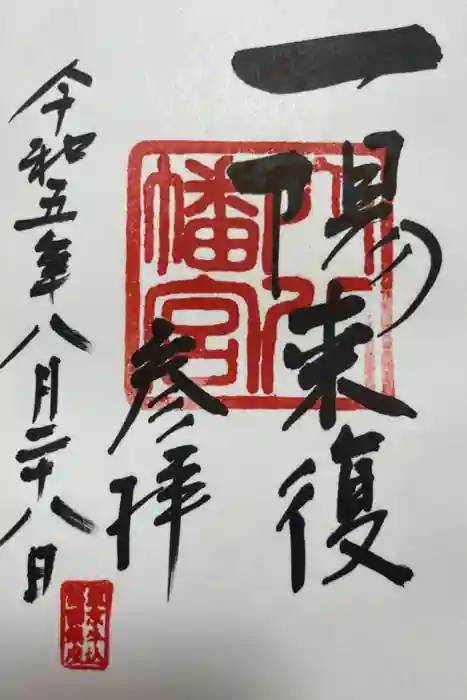 一陽来復
穴八幡宮
参拝
令和五年八月二十八日